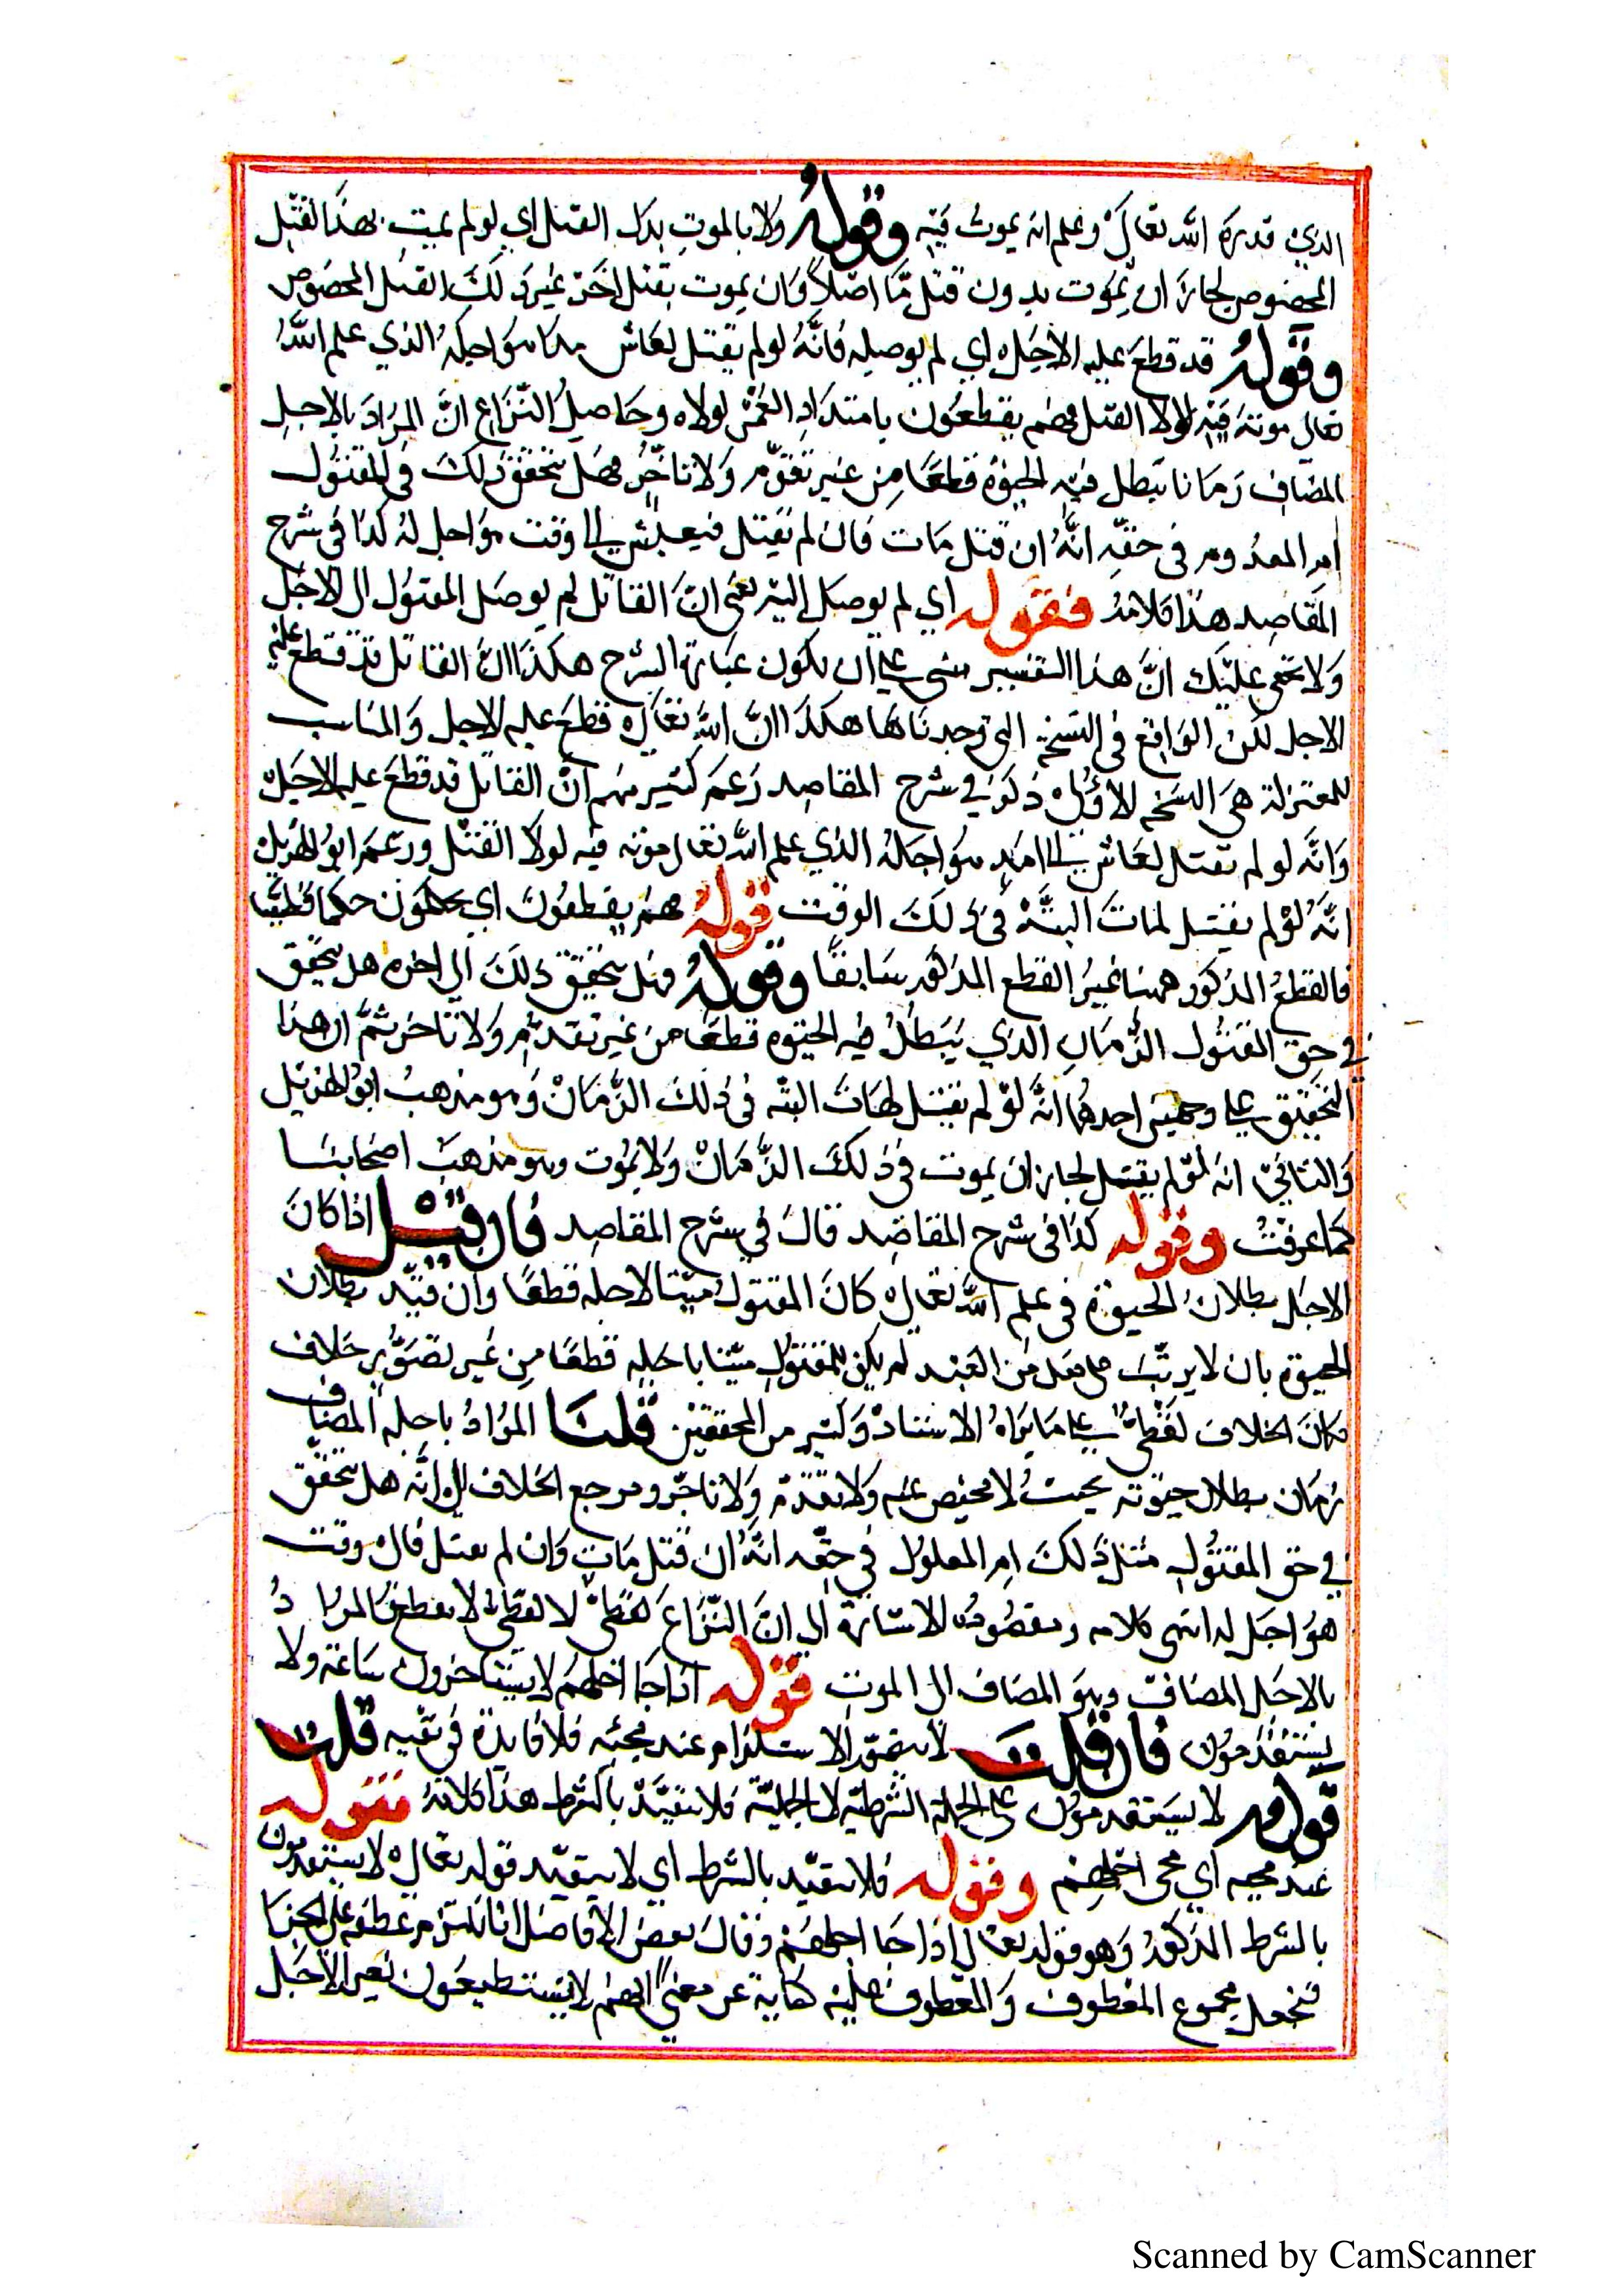 الذي قدره الله تعالى وعلم انه يموت فيه وقوله ولا بالموت بدل القتل اي لو لم يمت بهذا القتل
المخصوص لجاز ان يموت بدون قتل ما اصلا وان يموت بقتل اخر غير ذلك القتل المخصوص
وقوله قد قطع عليه الاجل اي لم يوصله فانه لو لم يقتل لعاش الى امد هو اجله الذي علم الله
تعالى موته فيه لولا القتل فهم يقطعون بامتداد العمر لولاه وحاصل النزاع ان المراد بالاجل
المضاف زمانا تبطل فيه الحيوة قطعا من غير تقدم ولا تاخر فهل يتحقق ذلك في المقتول
ام المعدوم في حقه انه ان قتل مات فان لم يقتل فيعيش الى وقت هو اجل له كذا في شرح
المقاصد هذا كلامه فقوله اي لم يوصل اليه يعني ان القاتل لم يوصل المقتول الى الاجل
ولا يخفى عليك ان هذا التفسير مبني على ان يكون عبارة الشرح هكذا ان القاتل قد قطع عليه
الاجل لكن الواقع في النسخة التي وجدناها هكذا ان الله تعالى قطع عليه الاجل والمناسب
للمعتزلة هي النسخه الاولى ذكر في شرح المقاصد زعم كثير منهم ان القاتل قد قطع عليه الاجل
وانه لو لم يقتل لعاش الى امد هو اجله الذي علم الله تعالى موته فيه لولا القتل وزعم ابو الهذيل
انه لو لم يقتل لمات البتة في ذلك الوقت قوله هم يقطعون اي يحكمون حكما قطعيا
فالقطع المذكور ههنا غير القطع المذكور سابقا وقوله فهل يتحقق ذلك الى اخره هل يتحقق
في حق المقتول الزمان الذي يبطل فيه الحيوه قطعا من غير تقدم ولا تاخر ثم ان هذا
التحقيق على وجهين احدهما انه لو لم يقتل لمات البته في ذلك الزمان وهو مذهب ابو الهذيل
والثاني انه لو لم يقتل لجاز ان يموت في ذلك الزمان ولا يموت وهو مذهب اصحابنا
كما عرفت وقوله كذا في شرح المقاصد قال في شرح المقاصد فان قيل اذا كان
الاجل بطلان الحيوة في علم الله تعالى كان المقتول ميتا لاجله قطعا وان قيد بطلان
الحيوة بان لا يرتب على فعل من العبد لم يكن المقتول ميتا باجله قطعا من غير تصور خلاف
فكان الخلاف لفظيا على ما يراه الاستاد وكثير من المحققين قلنا المراد باجله المضاف
زمان بطلان حيوته بحيث لا محيص عنه ولا تقدم ولا تاخر ومرجع الخلاف الى انه هل يتحقق
في حق المقتول مثل ذلك ام المعلول في حقه انه ان قتل مات وان لم يقتل فالى وقت
هو اجل له انتهى كلامه ومقصوده الاشارة الى ان النزاع لا لفظي المراد
بالاجل المضاف وهو المضاف الى الموت قوله اذا جا اجلهم لا يستاخرون ساعة ولا
يستقدمون فان قلت لا يتصور الاستقدام عند مجيئه فلا فايدة في نفيه قلت
قوله لا يستقدمون على الجملة الشرطية لا الجملية فلا يتقيد بالشرط هذا كلامه فقوله
عند مجيه اي مجى اجلهم وقوله فلا يتقيد بالشرط اي لا يتقيد قوله تعالى لا يستقدمون
بالشرط المذكور وهو قوله تعالى اذا جا اجلهم وقال بعض الافاضل انا نلتزم عطفه على الجزا
فنجعل مجموع المعطوف والمعطوف عليه كناية عن معنى انهم لا يستطيعون تغير الاجل
Scanned by CamScanner